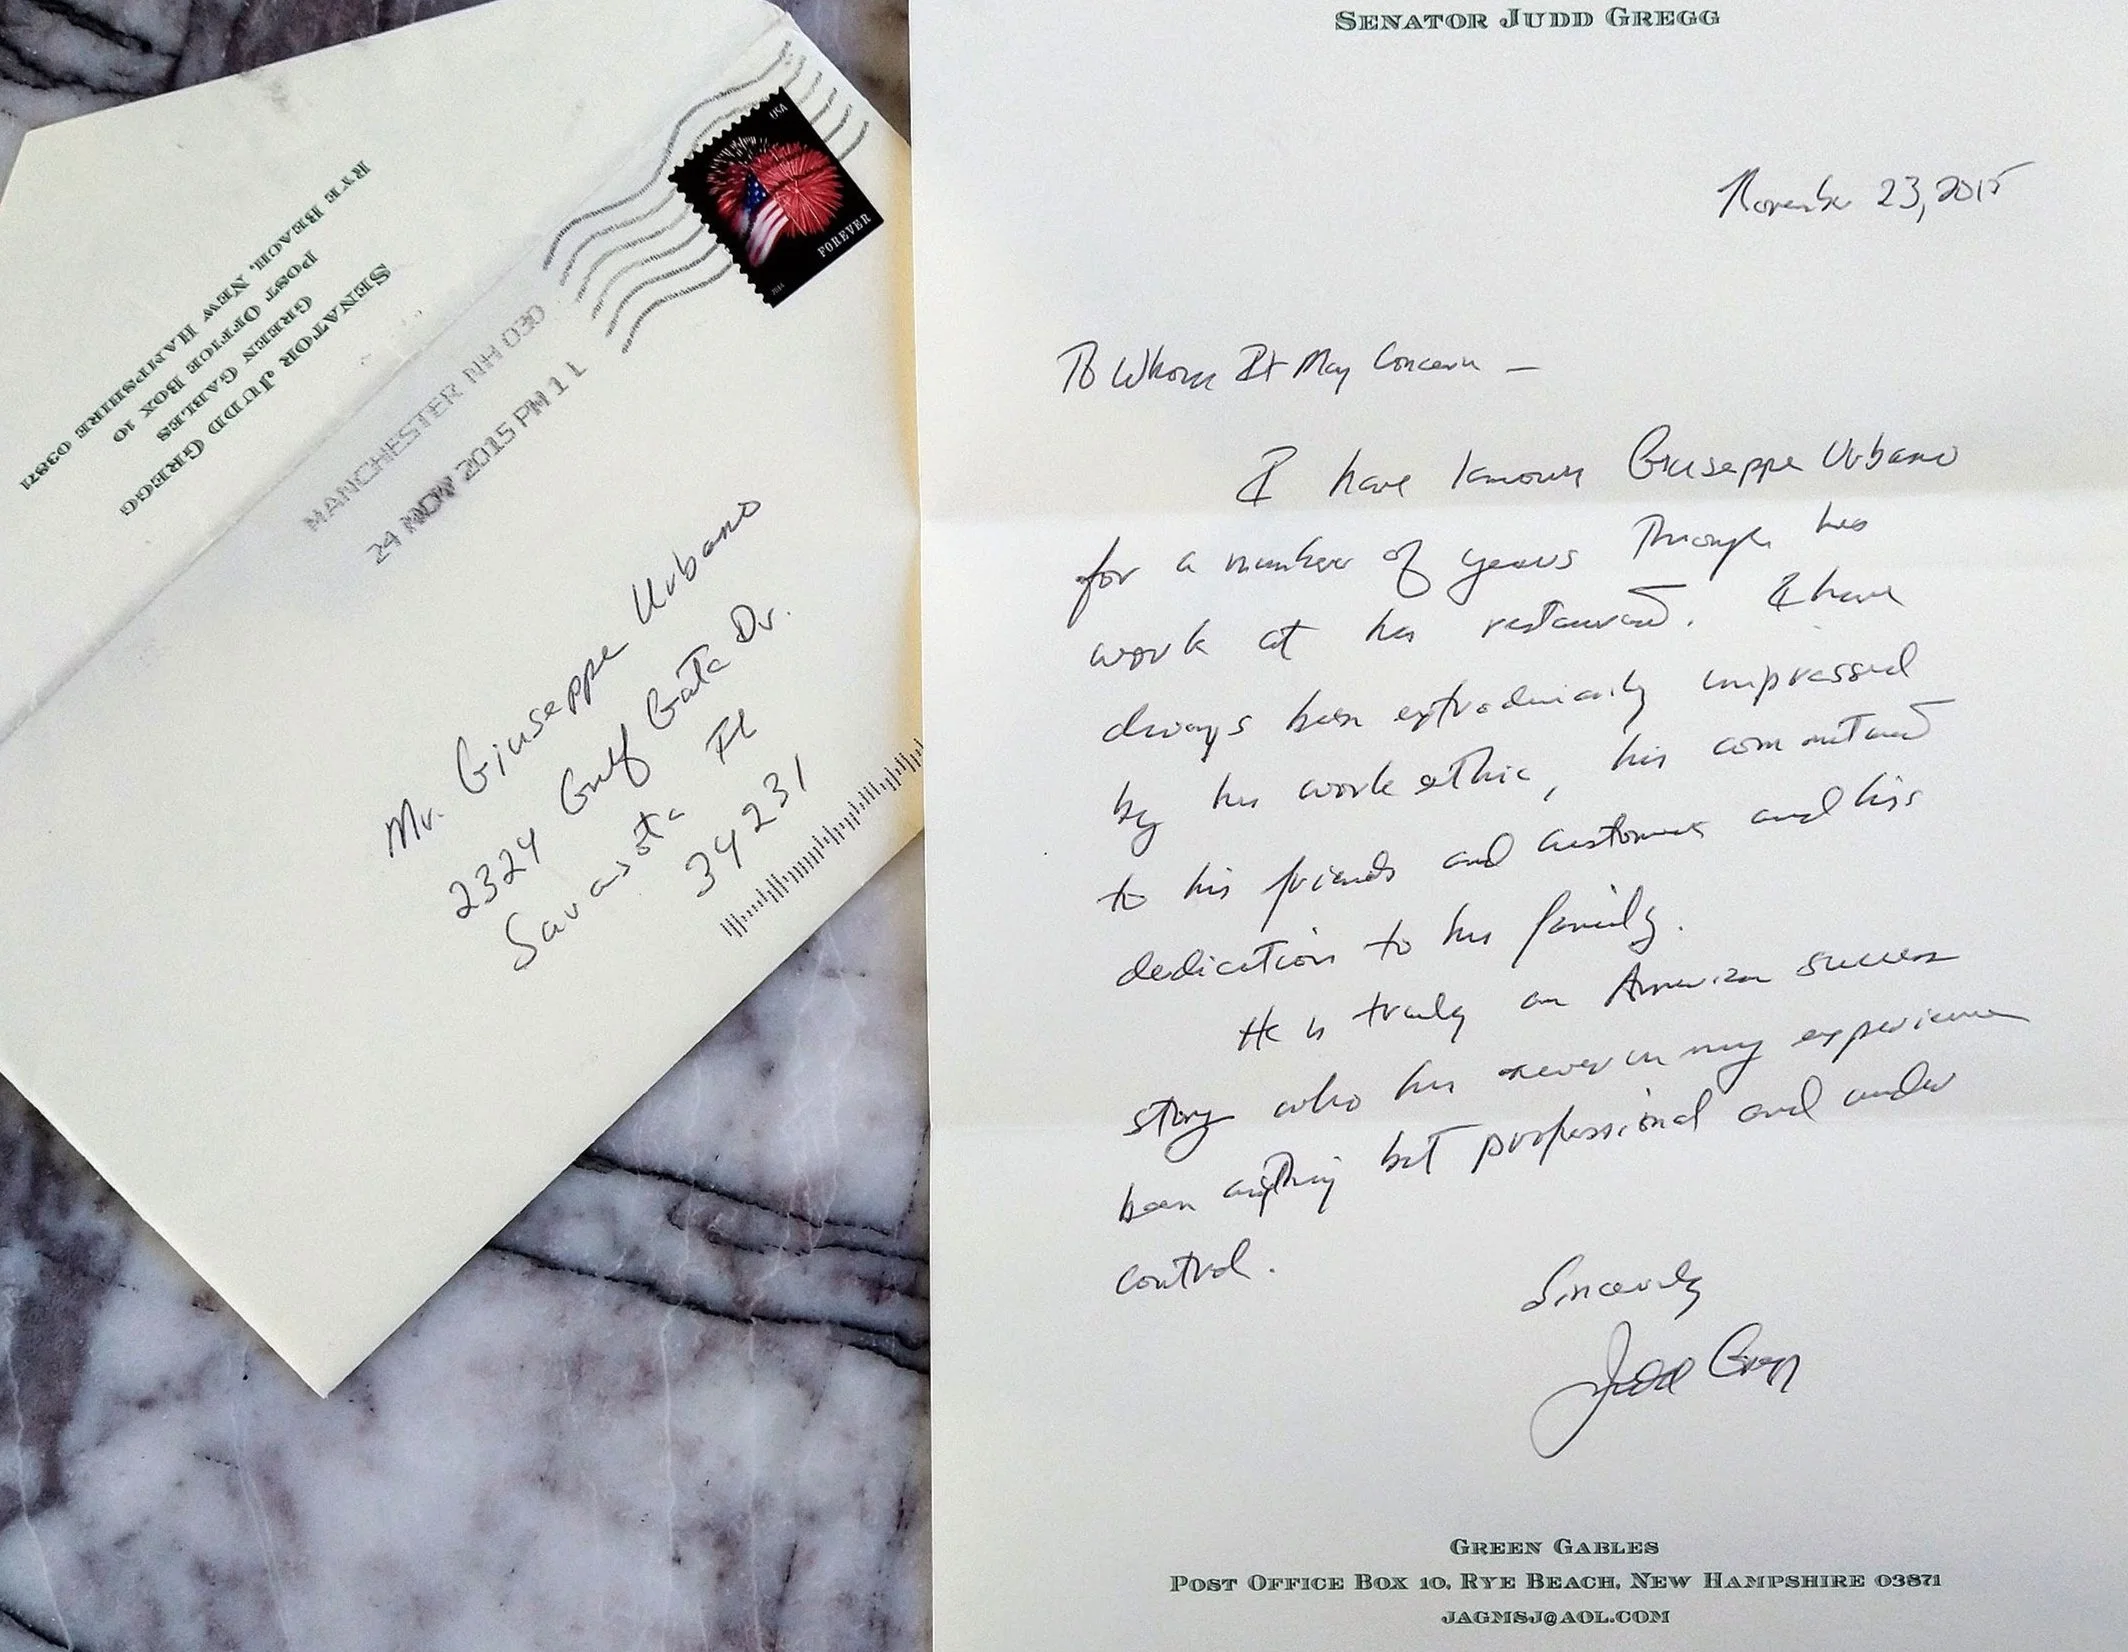 SENATOR JUDD GREGG
GREEN GABLES
POST OFFICE BOX 10
RYE BEACH, NEW HAMPSHIRE 03871
MANCHESTER NH 030
24 NOV 2015 PM 1 L
USA
FOREVER
2014
Mr. Giuseppe Urbano
2324 Gulf Gate Dr.
Sarasota Fl
34231
SENATOR JUDD GREGG
November 23, 2015
To Whom It May Concern —
I have known Giuseppe Urbano
for a number of years through his
work at his restaurant. I have
always been extrodinarily impressed
by his work ethic, his commitment
to his friends and customers and his
dedication to his family.
He is truly an American success
story who has never in my experience
been anything but professional and under
control.
Sincerely
Judd Gregg
GREEN GABLES
POST OFFICE BOX 10, RYE BEACH, NEW HAMPSHIRE 03871
JAGMSJ@AOL.COM